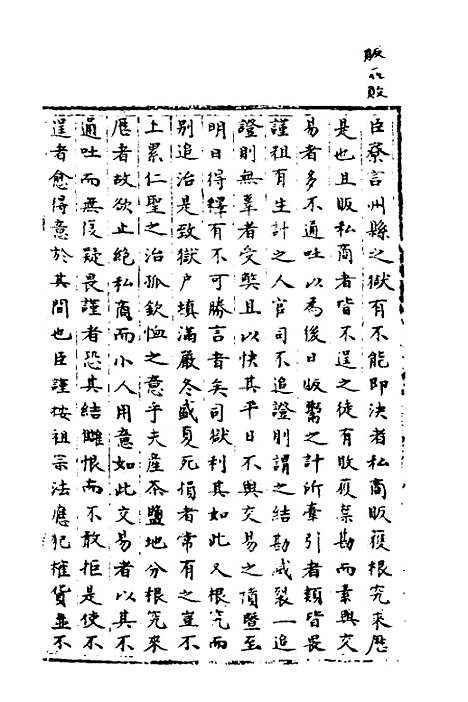 販一作敗
臣寮言州縣之獄有不能即決者私商販獲根究来歷
是也且販私商者皆不逞之徒有敗獲禁勘而牽與交
易者多不通吐以為後日販鬻之計所牽引者類皆畏
謹祖有生計之人官司不追證則謂之結勘咸裂一追
證則無辜者受弊且以快其平日不與交易之憤暨至
明日得釋有不可勝言者矣司獄利其如此又根究而
别追治是致獄户填滿嚴冬盛夏死損者常有之豈不
上累仁聖之治孤欽恤之意乎夫産茶鹽地分根究來
歷者故欲止絶私商而小人用意如此交易者以其不
通吐而無復疑畏謹者恐其結雠恨而不敢拒是使不
逞者愈得意於其間也臣謹按祖宗法應犯榷貨並不